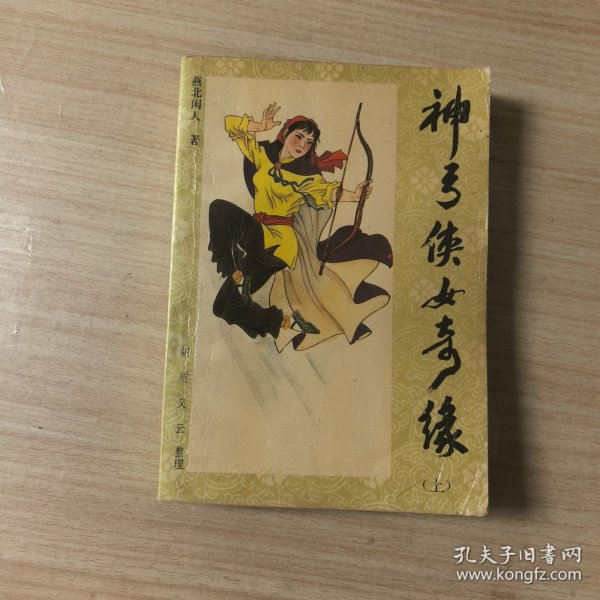 神弓侠女奇缘
（上）
燕北闲人 著
胡质 又云 整理
孔夫子旧书网
www.kongfz.com